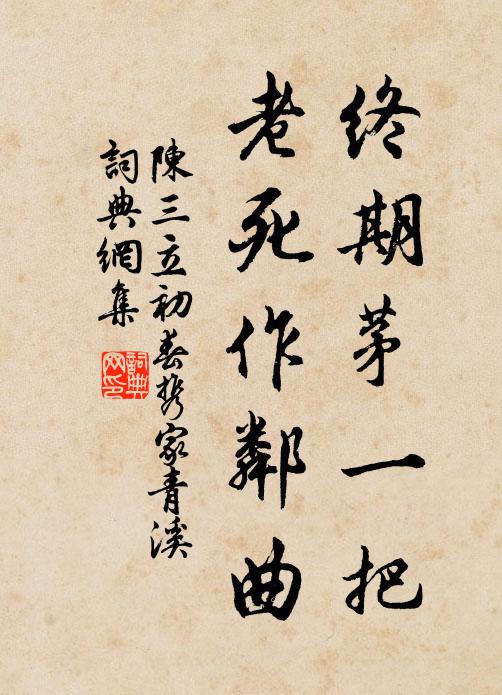 終期茅一把
老死作鄰曲
陳三立初春攜家青溪
詞典網集
詞典網印